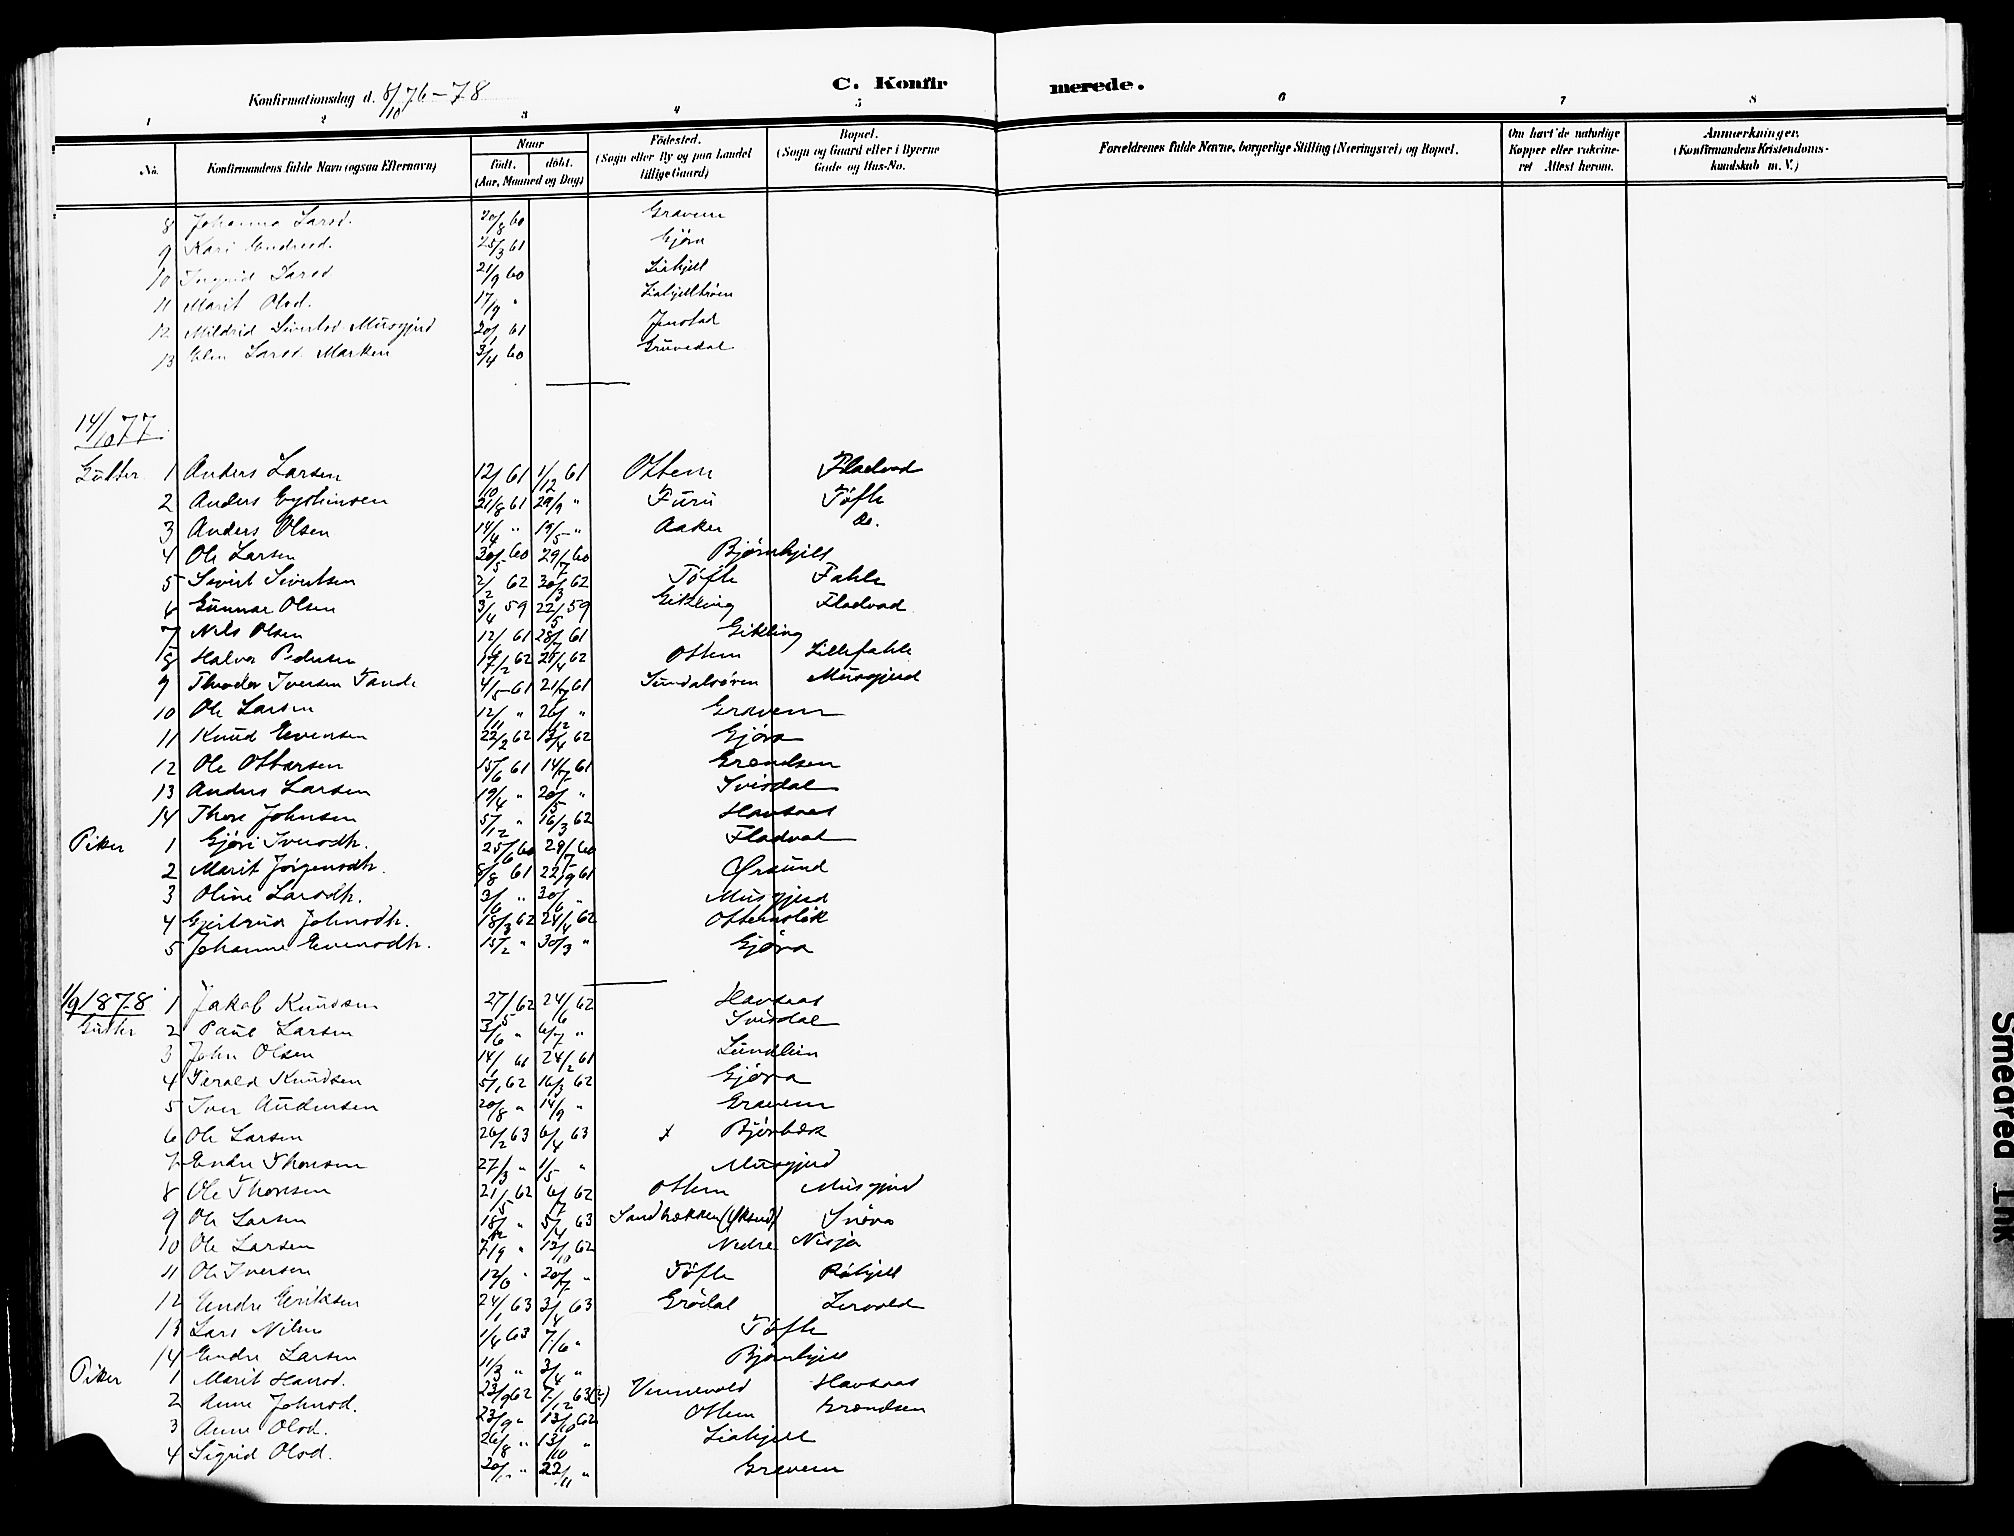 C. Konfirmerede.
Konfirmationsdag d. 8/10 76-78
1 2 3 4 5 6 7 8
No.
Konfirmandens fulde Navn (ogsaa Efternavn)
Naar
født. døbt.
(Aar, Maaned og Dag)
Fødested.
(Sogn eller By og paa Landet
tillige Gaard)
Bopæl.
(Sogn og Gaard eller i Byerne
Gade og Hus-No.
Forældrenes fulde Navne, borgerlige Stilling (Næringsvei) og Bopæl.
Om havt de naturlige
Kopper eller vakcine-
ret Attest herom.
Anmærkninger.
(Konfirmandens Kristendoms-
kundskab m. V.)
8 Johanna Larsd. 20/8 60 Gravem
9 Kari Endresd. 25/3 61 Gjøra
10 Ingrid Larsd 21/9 60 Liahjell
11 Marit Olsd. 17/9 " Liahjelltrøen
12 Mildrid Sivertsd. Musgjerd 20/1 61 Jenstad
13 Elen Larsd. Marken 3/4 60 Gruvedal
14/10 77
Gutter 1 Anders Larsen 12/10 61 1/12 61 Ottem Fladvad
2 Anders Eysteinsen 21/8 61 29/9 " Furu Tøfte
3 Anders Olsen 14/4 " 19/5 " Aaker do.
4 Ole Larsen 30/5 60 29/7 60 Bjørnhjell
5 Sivert Sivertsen 2/2 62 30/3 62 Tøfte Fahle
6 Gunnar Olsen 3/4 59 22/5 59 Gikling Fladvad
7 Nils Olsen 12/6 61 28/7 61 Gikling
8 Halvor Pedersen 17/2 62 21/4 62 Ottem Lillefahle
9 Theodor Iversen Tande 4/5 61 21/7 61 Sundalsøren Musgjerd
10 Ole Larsen 12/11 " 26/12 " Gravem
11 Knud Evensen 22/2 62 13/4 62 Gjøra
12 Ole Ottarsen 15/6 61 14/7 61 Grændsen
13 Anders Larsen 19/4 " 20/5 " Svisdal
14 Thore Johnsen 5/12 " 16/3 62 Havsaas
Piker 1 Gjøri Iversdtr. 25/6 60 29/7 60 Fladvad
2 Marit Jørgensdtr. 8/8 61 22/9 61 Øksund
3 Oline Larsdtr. 3/6 " 30/6 " Musgjerd
4 Gjertrud Johnsdtr. 18/3 62 24/4 62 Ottemsløk
5 Johanne Evensdtr. 15/2 " 30/3 " Gjøra
1/9 1878 1 Jakob Knudsen 27/5 62 24/6 62 Havsaas
Gutter 2 Paul Larsen 3/6 " 6/7 " Svisdal
3 John Olsen 14/1 61 24/2 61 Lundlien
4 Jerald Knudsen 5/1 62 16/3 62 Gjøra
5 Iver Andersen 20/8 " 14/9 " Gravem
6 Ole Larsen 26/2 63 6/4 63 x Bjørbæk
7 Endre Thoresen 27/3 " 1/5 " Musgjerd
8 Ole Thoresen 21/5 62 6/7 62 Ottem Musgjerd
9 Ole Larsen 18/12 " 5/4 63 Sandbækken (Øksund) Snøva
10 Ole Larsen 7/9 " 12/10 62 Nedre Nisja
11 Ole Iversen 12/6 " 20/7 " Tøfte Røhjell
12 Endre Eriksen 24/1 63 3/4 63 Grødal Lervold
13 Lars Nilsen 1/4 63 7/6 " Tøfte
14 Endre Larsen 11/3 " 3/4 " Bjørnhjell
Piker 1 Marit Hansd. 23/9 62 7/12 63(2) Vennevold Havsaas
2 Anne Johnsd. 23/9 " 13/10 62 Ottem Grændsen
3 Anne Olsd. 26/8 " 13/10 " Liahjell
4 Sigrid Olsd. 20/ " 22/11 " Gravem
Smeared Ink